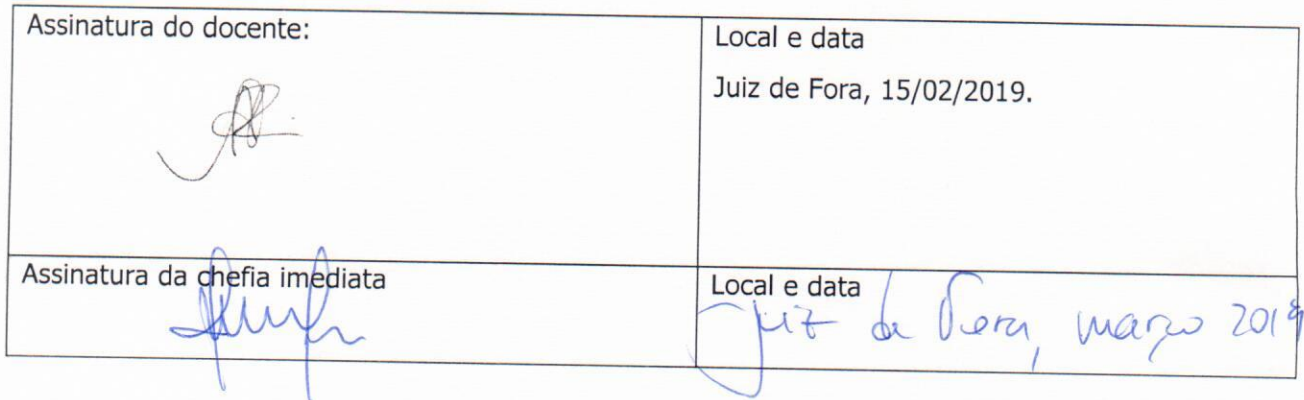 Assinatura do docente:
Local e data
Juiz de Fora, 15/02/2019.
Assinatura da chefia imediata
Local e data
Juiz de Fora, março 2019